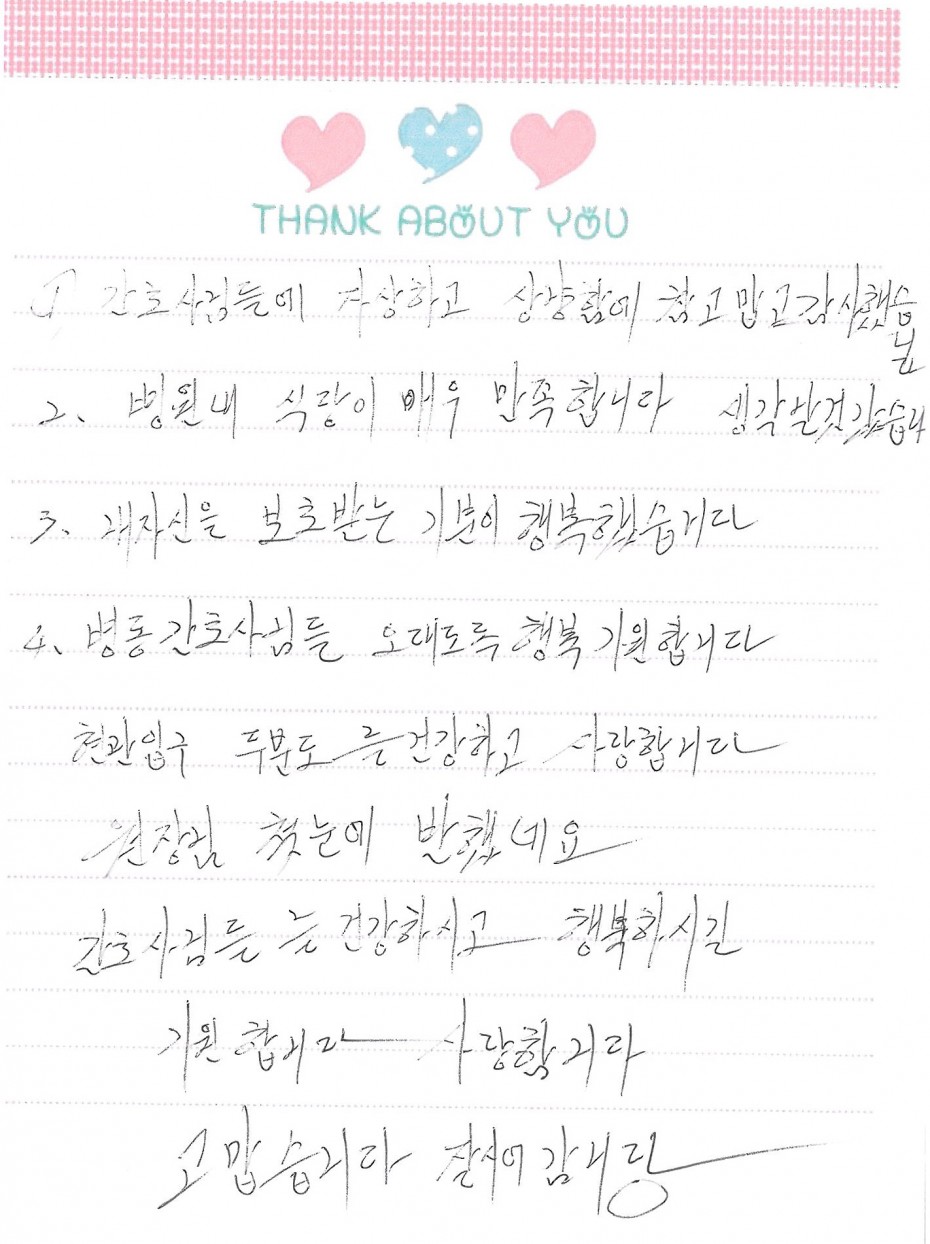 THANK ABOUT YOU
1, 간호사님들에 자상하고 상냥함에 참고맙고감사했습
니다
2、 병원내 식당이 매우 만족합니다
3、 내자신을 보호받는 기분이 행복했습니다
4、 병동간호사님들 오래도록 행복 기원합니다
현관입구 두분도 늘건강하고 사랑합니다
원장님 첫눈에 반했네요
간호사님들 늘건강하시고 행복하시길
기원합니다 사랑합니다
고맙습니다 잘쉬어 갑니당